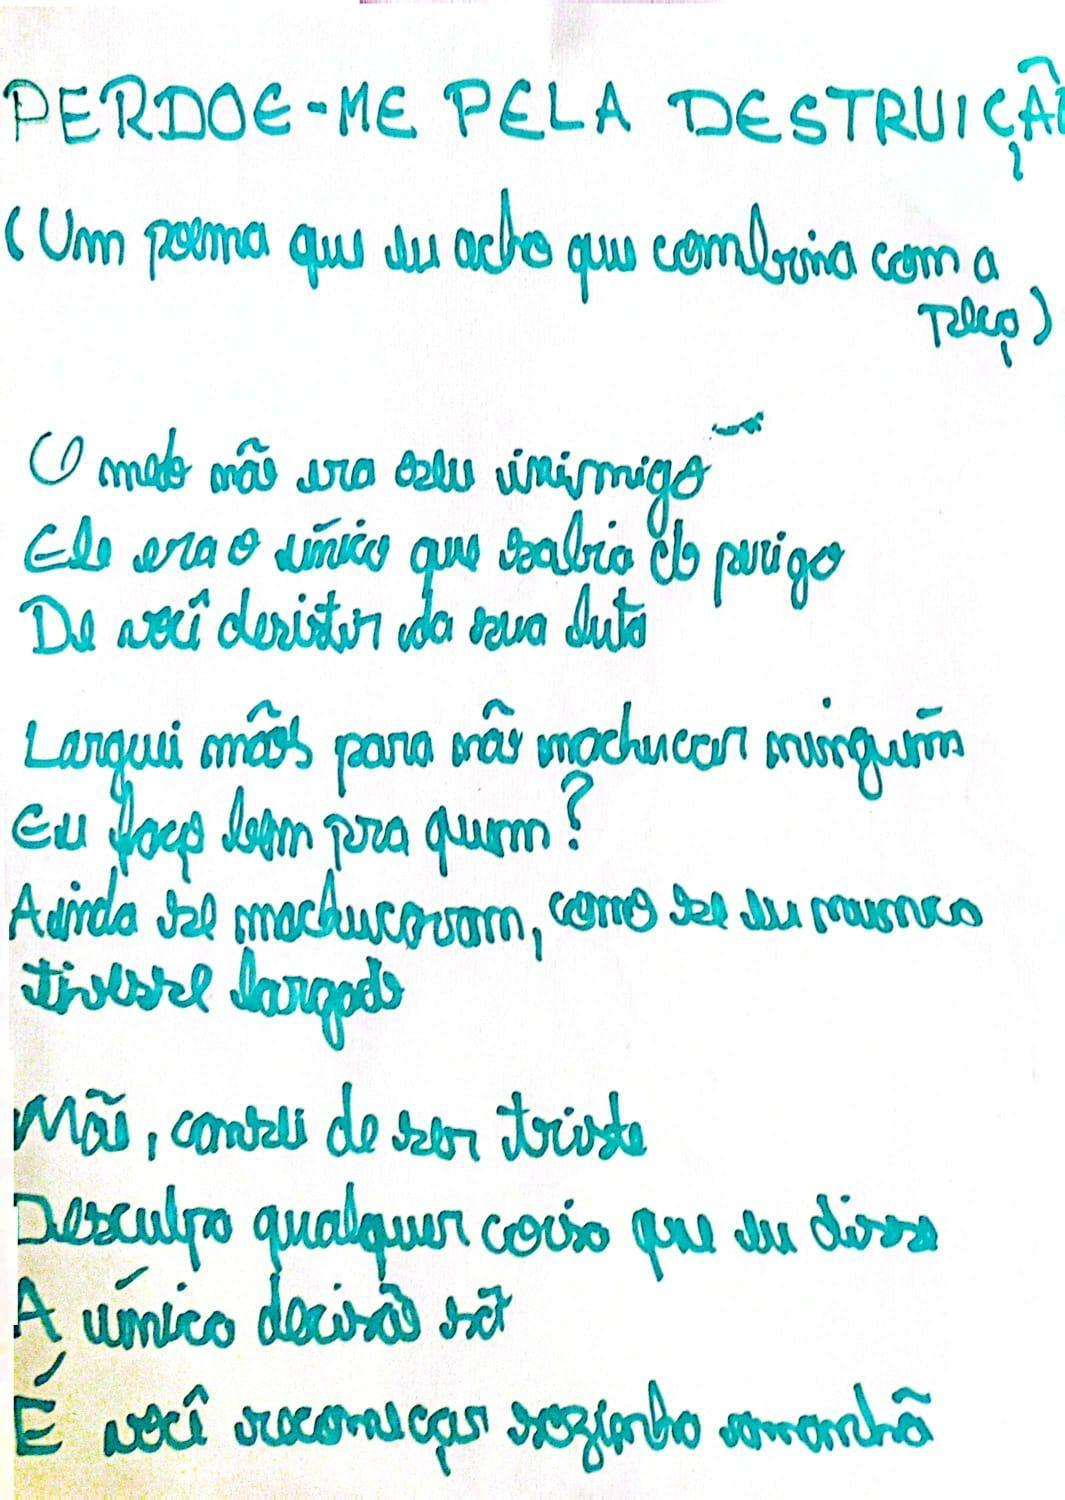 PERDOE-ME PELA DESTRUIÇÃO
(Um poema que eu acho que combina com a
peça)
O medo não era seu inimigo
Ele era o único que sabia do perigo
De você desistir da sua luta
Larguei mãos para não machucar ninguém
Eu faço bem pra quem?
Ainda se machucavam, como se eu nunca
tivesse largado
Mãe, cansei de ser triste
Desculpa qualquer coisa que eu disse
A única decisão sã
É você recomeçar sozinho amanhã